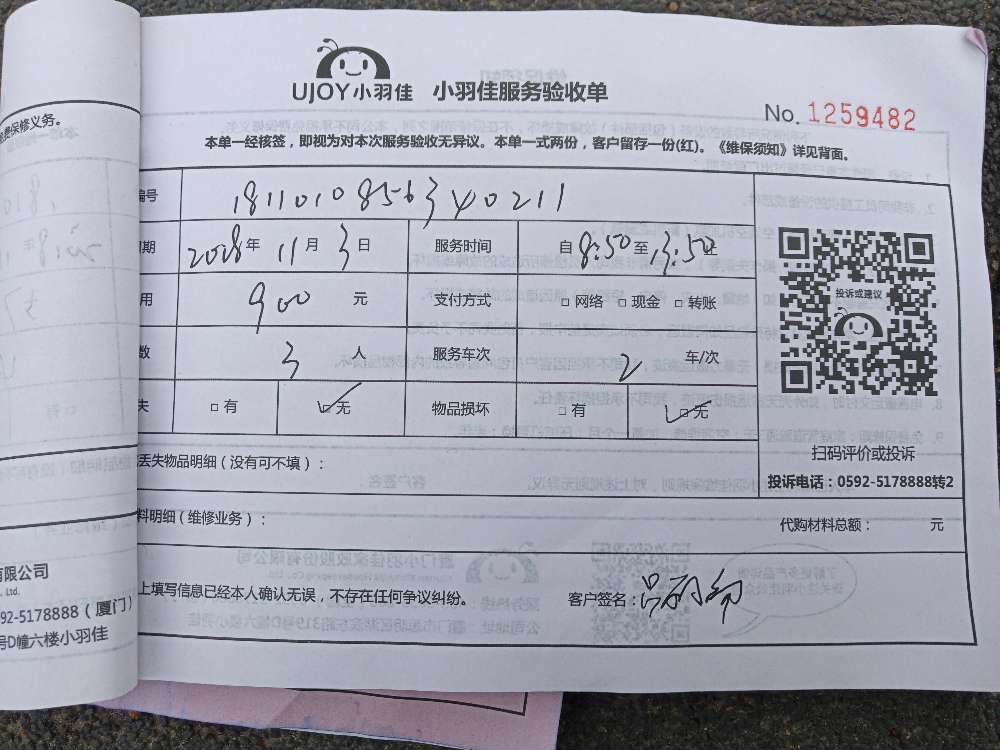 UJOY小羽佳 小羽佳服务验收单
No. 1259482
本单一经核签，即视为对本次服务验收无异议。本单一式两份，客户留存一份(红)。《维保须知》详见背面。
编号 1811010856340211
期 2018年 11月 3日 服务时间 自8:50至13:50止
用 900 元 支付方式 □网络 □现金 □转账
数 3 人 服务车次 2 车/次
失 □有 ☑无 物品损坏 □有 ☑无
投诉或建议
扫码评价或投诉
投诉电话：0592-5178888转2
丢失物品明细（没有可不填）：
料明细（维修业务）： 代购材料总额： 元
上填写信息已经本人确认无误，不存在任何争议纠纷。 客户签名：
费保修义务。
有限公司
Ltd.
92-5178888（厦门）
号D幢六楼小羽佳